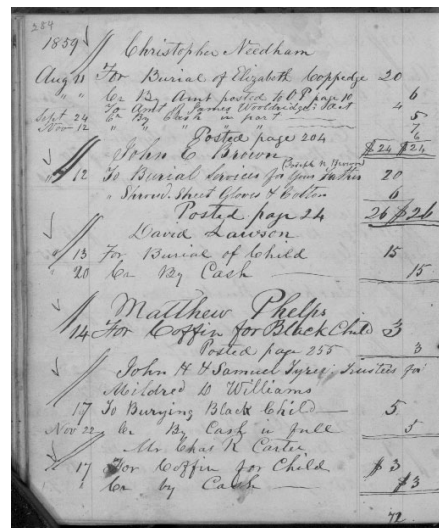 284
1859 Christopher Needham
Aug 11 For Burial of Elizabeth Coppedge 20
" " Cr By Amt posted to O P page 10 6
To Amt of James Wooldridge acct 4
Sept 24 Cr By Cash in part 5
Nov 12 " " " " 7
6
Posted page 204 $24 $24
John C Brown
(Joseph N. Brown)
" 12 To Burial Services for your Father 20
" Shroud Sheet Gloves & Cotton 6
Posted page 24 26 $26
David Lawson
" 13 For Burial of Child 15
" 20 Cr By Cash 15
Matthew Phelps
" 14 For Coffin for Black Child 3
Posted page 255 3
John H & Samuel Tyree, Trustees for
Mildred D Williams
" 17 To Burying Black Child 5
Nov 22 Cr By Cash in full 5
Mr Chas R Carter
" 17 For Coffin for Child $3
Cr by Cash $3
72